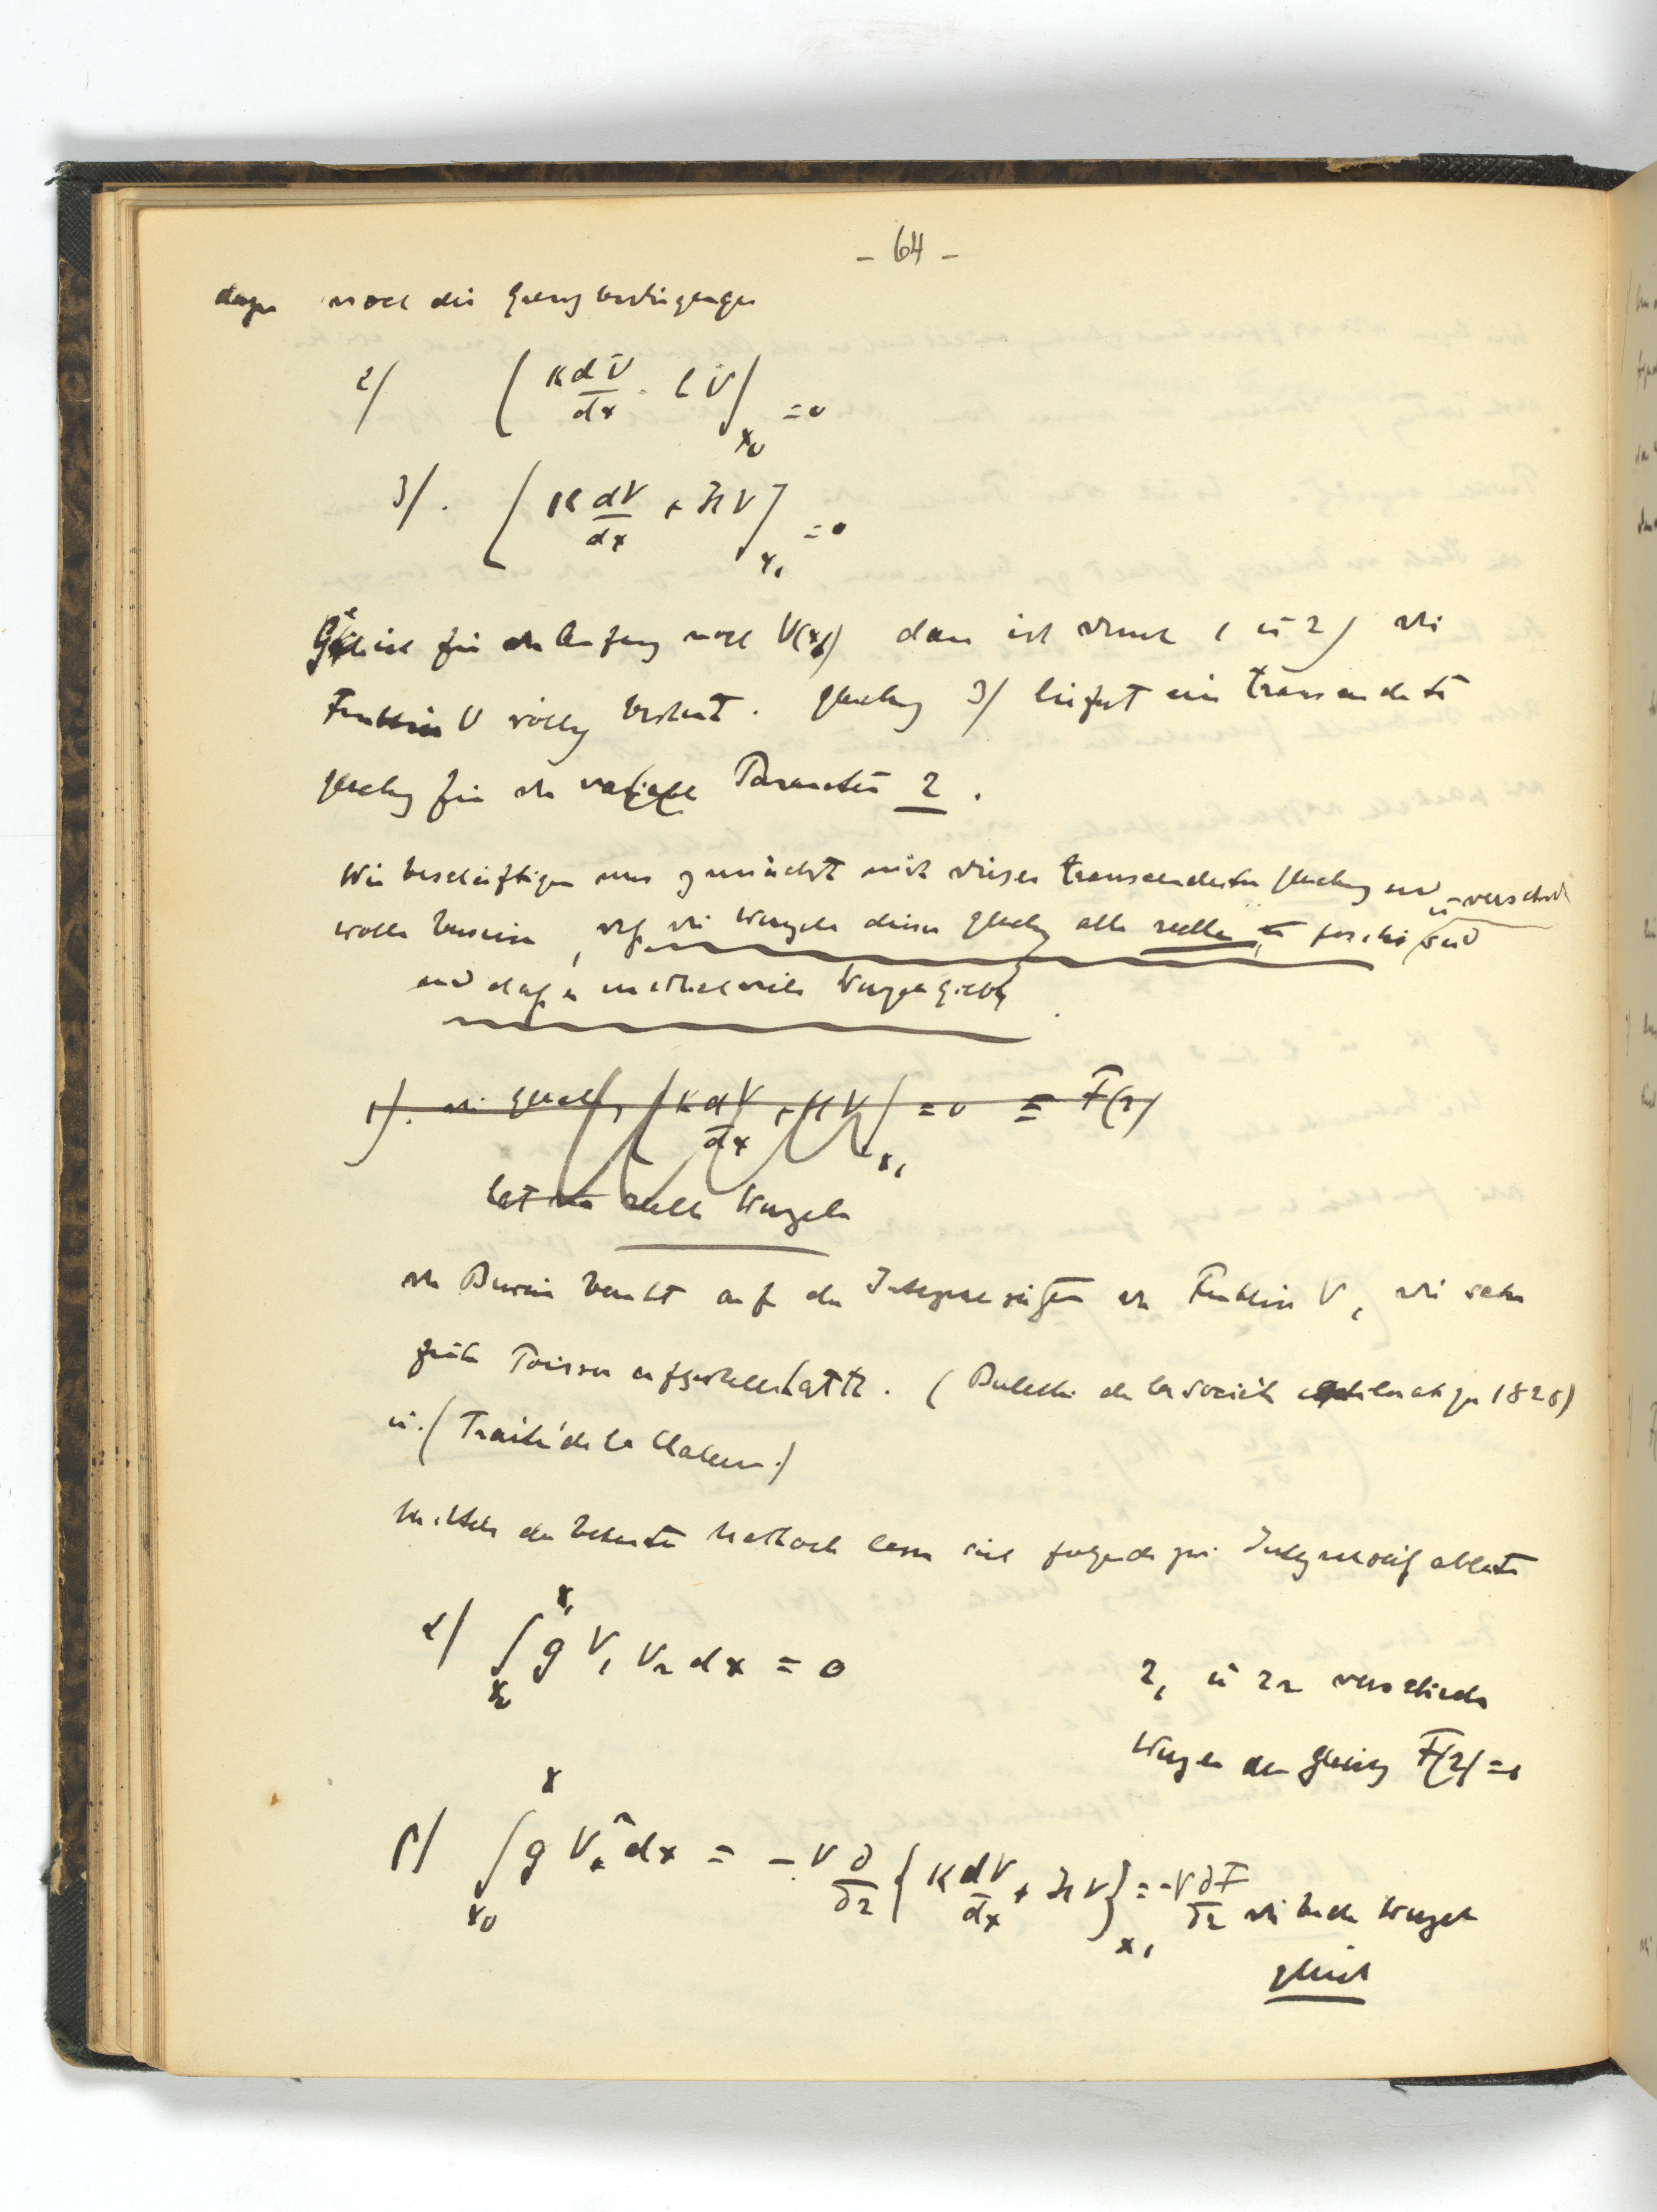 - 64 -
dazu noch die Grenzbedingungen
2) ( K dV/dx - l V )x0 = 0
3) . [ K dV/dx + H V ]x1 = 0
für den Anfang noch V(x0) dann ist durch 1 ü 2) die
Funktion V völlig bestimt . Gleichung 3) liefert eine transcendente
Gleichung für den variable Parameter r .
Wir beschäftigen uns zunächst mit dieser transcendenten Gleichung und
wollen beweisen , daß die Wurzeln dieser Gleichung alle reelle ü positiv ü verschieden sind
und daß es unendlich viele Wurzeln giebt
1). die Gleichung ( K dV/dx + H V )x1 = 0 = F(r)
hat reelle Wurzeln
der Beweis beruht auf den Integraleigensch der Funktion V , die schon
früher Poisson aufgestellt hatte . ( Bulletin de la société 1826)
ü. ( Traité de la Chaleur. )
Mittels der bekannten Methode lassen sich folgende zwei ableiten
α) ∫x0 x1 g V1 V2 dx = 0
r1 ü r2 verschiedene
Wurzeln der Gleichung F(r) = 0
β) ∫x0 x g V² dx = - V ∂/∂r { K dV/dx + H V }x1 = - V ∂F/∂r die beiden Wurzeln
gleich